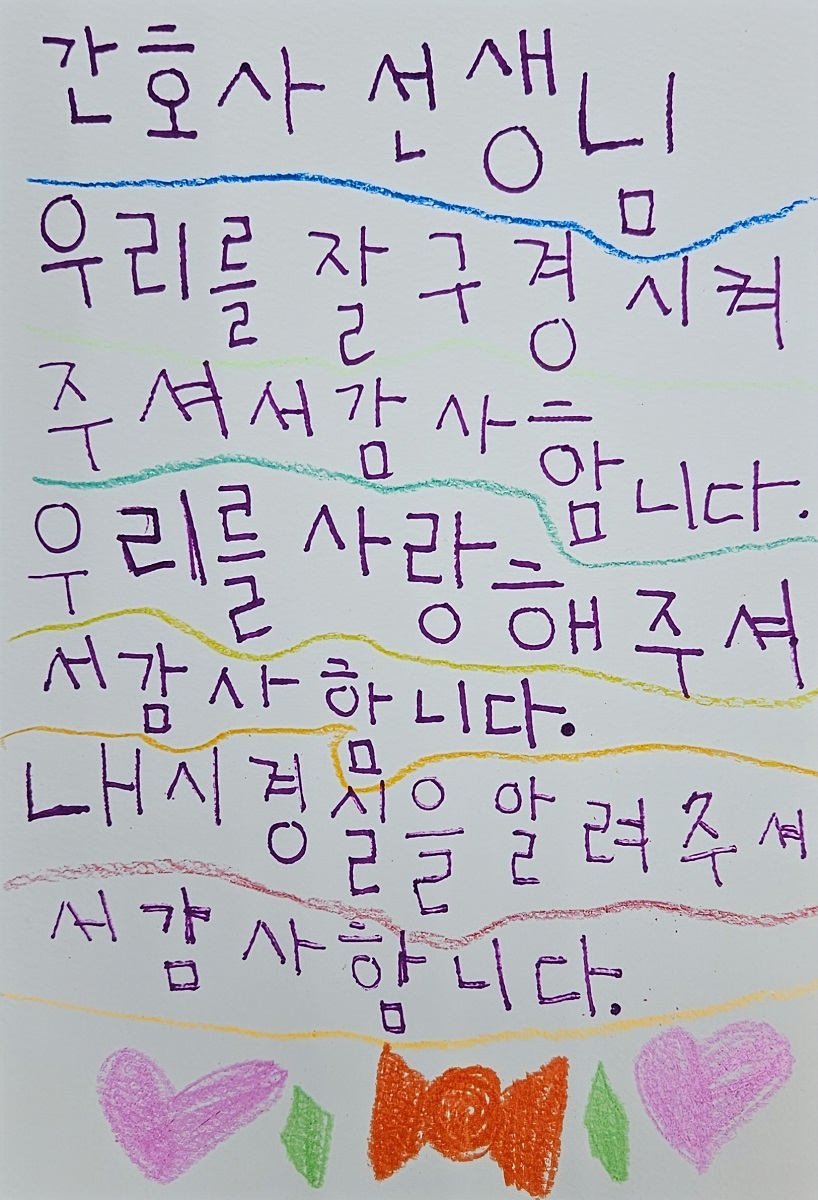 간호사 선생님
우리를 잘 구경 시켜
주셔서 감사합니다.
우리를 사랑해 주셔
서 감사합니다.
내시경실을 알려주셔
서 감사합니다.